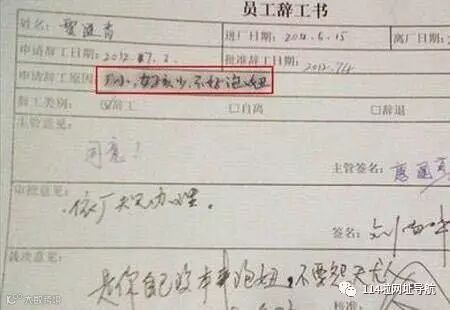 员工辞工书
姓名: 进厂日期: 2010.6.15 离厂日
申请辞工日期: 2012.7.2. 批准辞工日期: 2012.7.4
申请辞工原因 厂小,女孩少,不好泡妞
辞工类别: ☑辞工 □自离 □辞退
主管意见:
同意!
主管签名:
审批意见:
依厂规办理。
签名:
裁决意见:
是你自己没本事泡妞,不要怨天尤人
大故传媒
114啦网址导航